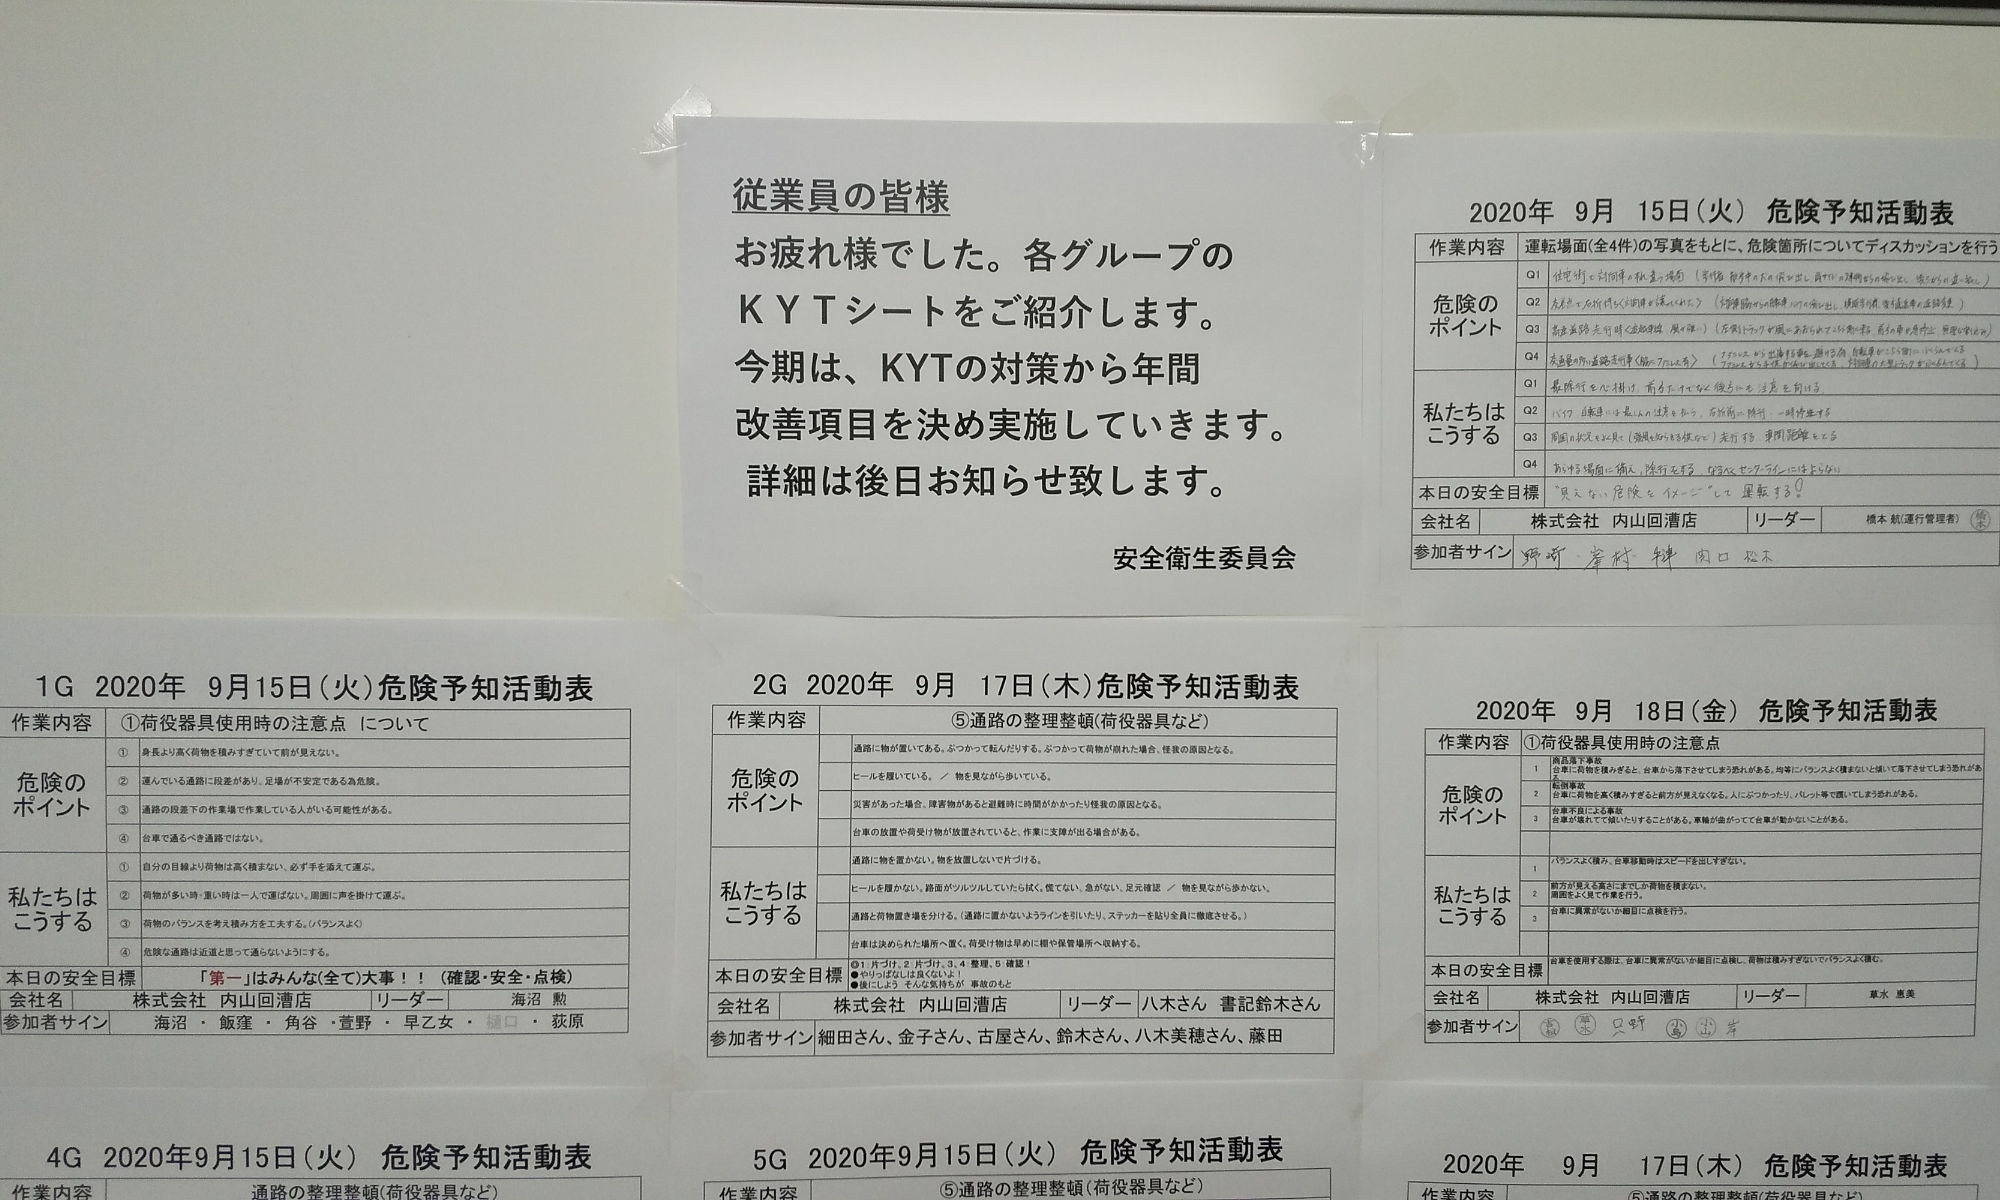 従業員の皆様
お疲れ様でした。各グループの
ＫＹＴシートをご紹介します。
今期は、KYTの対策から年間
改善項目を決め実施していきます。
詳細は後日お知らせ致します。
安全衛生委員会
2020年 9月 15日（火） 危険予知活動表
作業内容 運転場面(全4件)の写真をもとに、危険箇所についてディスカッションを行う
危険のポイント
Q1
Q2
Q3
Q4
私たちはこうする
Q1 最徐行を心掛け、前方だけでなく後方にも注意を向ける
Q2
Q3
Q4
本日の安全目標 "見えない危険をイメージ"して運転する!
会社名 株式会社 内山回漕店 リーダー 橋本 航(運行管理者) 橋本
参加者サイン 野崎 峯村 関口 松木
1G 2020年 9月15日（火）危険予知活動表
作業内容 ①荷役器具使用時の注意点 について
危険のポイント
① 身長より高く荷物を積みすぎていて前が見えない。
② 運んでいる通路に段差があり、足場が不安定である為危険。
③ 通路の段差下の作業場で作業している人がいる可能性がある。
④ 台車で通るべき通路ではない。
私たちはこうする
① 自分の目線より荷物は高く積まない、必ず手を添えて運ぶ。
② 荷物が多い時・重い時は一人で運ばない。周囲に声を掛けて運ぶ。
③ 荷物のバランスを考え積み方を工夫する。(バランスよく)
④ 危険な通路は近道と思って通らないようにする。
本日の安全目標 「第一」はみんな(全て)大事！！ (確認・安全・点検)
会社名 株式会社 内山回漕店 リーダー 海沼 勲
参加者サイン 海沼 ・ 飯窪 ・ 角谷 ・萱野 ・ 早乙女 ・ 樋口 ・ 荻原
2G 2020年 9月 17日（木）危険予知活動表
作業内容 ⑤通路の整理整頓(荷役器具など)
危険のポイント
通路に物が置いてある。ぶつかって転んだりする。ぶつかって荷物が崩れた場合、怪我の原因となる。
ヒールを履いている。 ／ 物を見ながら歩いている。
災害があった場合、障害物があると避難時に時間がかかったり怪我の原因となる。
台車の放置や荷受け物が放置されていると、作業に支障が出る場合がある。
私たちはこうする
通路に物を置かない。物を放置しないで片づける。
ヒールを履かない。路面がツルツルしていたら拭く。慌てない、急がない、足元確認 ／ 物を見ながら歩かない。
通路と荷物置き場を分ける。(通路に置かないようラインを引いたり、ステッカーを貼り全員に徹底させる。)
台車は決められた場所へ置く。荷受け物は早めに棚や保管場所へ収納する。
本日の安全目標
◎1 片づけ、2 片づけ、3、4 整理、5 確認！
●やりっぱなしは良くないよ！
●後にしよう そんな気持ちが 事故のもと
会社名 株式会社 内山回漕店 リーダー 八木さん 書記鈴木さん
参加者サイン 細田さん、金子さん、古屋さん、鈴木さん、八木美穂さん、藤田
2020年 9月 18日（金） 危険予知活動表
作業内容 ①荷役器具使用時の注意点
危険のポイント
1 商品落下事故
台車に荷物を積みすぎると、台車から落下させてしまう恐れがある。均等にバランスよく積まないと傾いて落下させてしまう恐れがある
2 転倒事故
台車に荷物を高く積みすぎると前方が見えなくなる。人にぶつかったり、パレット等で躓いてしまう恐れがある。
3 台車不良による事故
台車が壊れてて傾いたりすることがある。車輪が曲がってて台車が動かないことがある。
私たちはこうする
1 バランスよく積み、台車移動時はスピードを出しすぎない。
2 前方が見える高さにまでしか荷物を積まない。
周囲をよく見て作業を行う。
3 台車に異常がないか細目に点検を行う。
本日の安全目標 台車を使用する際は、台車に異常がないか細目に点検し、荷物は積みすぎないでバランスよく積む。
会社名 株式会社 内山回漕店 リーダー 草水 恵美
参加者サイン 草水 只野 小島 小山 岸
4G 2020年9月15日（火） 危険予知活動表
通路の整理整頓(荷役器具など)
5G 2020年9月15日（火） 危険予知活動表
作業内容 ⑤通路の整理整頓(荷役器具など)
2020年 9月 17日（木） 危険予知活動表
作業内容 ⑤通路の整理整頓(荷役器具など)